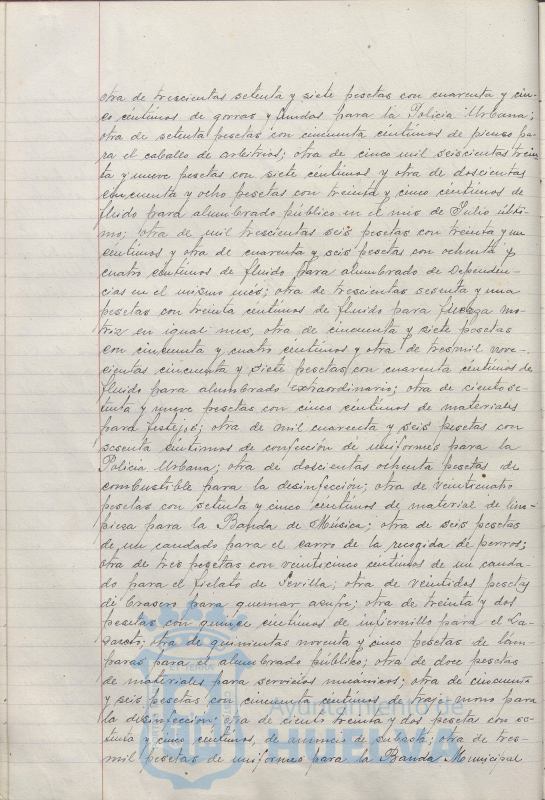 otra de trescientas setenta y siete pesetas con cuarenta y cin-
co céntimos de gorras y fundas para la Policia Urbana;
otra de setenta pesetas con cincuenta céntimos de pienso pa-
ra el caballo de arbitrios; otra de cinco mil seiscientas trein
ta y nueve pesetas con siete céntimos y otra de doscientas
cincuenta y ocho pesetas con treinta y cinco céntimos de
fluido para alumbrado público en el mes de Julio últi-
mo; otra de mil trescientas seis pesetas con treinta y un
céntimos y otra de cuarenta y seis pesetas con ochenta y
cuatro céntimos de fluido para alumbrado de Dependen-
cias en el mismo mes; otra de trescientas sesenta y una
pesetas con treinta céntimos de fluido para fuerza mo-
triz en igual mes, otra de cincuenta y siete pesetas
con cincuenta y cuatro céntimos y otra de tres mil nove-
cientas cincuenta y siete pesetas con cuarenta céntimos de
fluido para alumbrado extraordinario; otra de ciento se-
tenta y nueve pesetas con cinco céntimos de materiales
para festejos; otra de mil cuarenta y seis pesetas con
sesenta céntimos de confección de uniformes para la
Policia Urbana; otra de doscientas ochenta pesetas de
combustible para la desinfección; otra de veinticuatro
pesetas con setenta y cinco céntimos de material de lim-
pieza para la Banda de Música; otra de seis pesetas
de un candado para el carro de la recogida de perros;
otra de tres pesetas con veinticinco céntimos de un canda-
do para el fielato de Sevilla; otra de veintidos pesetas
de brasero para quemar azufre; otra de treinta y dos
pesetas con quince céntimos de infiernillo para el La-
zareto; otra de quinientas noventa y cinco pesetas de lám-
paras para el alumbrado público; otra de doce pesetas
de materiales para servicios mecánicos; otra de cincuenta
y seis pesetas con cincuenta céntimos de traje mono para
la desinfección; otra de ciento treinta y dos pesetas con se-
tenta y cinco céntimos, de anuncio de subasta; otra de tres-
mil pesetas de uniformes para la Banda Municipal
Ayuntamiento de
HUELVA